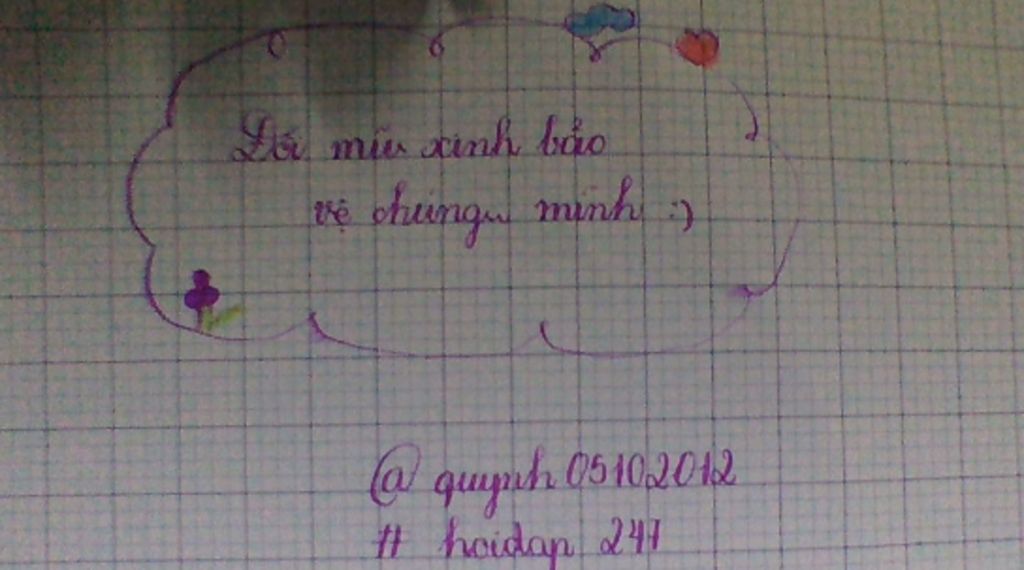 Đôi mũ xinh bảo
vệ chúng mình :)
@ quynh05102012
# hoidap 247